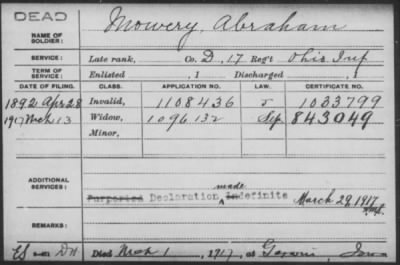 DEAD
NAME OF SOLDIER: Mowery, Abraham
SERVICE: Late rank, Co. D, 17 Reg't Ohio Inf
TERM OF SERVICE: Enlisted , 1 Discharged , 1
DATE OF FILING. CLASS. APPLICATION NO. LAW. CERTIFICATE NO.
1892 Apr 28 Invalid, 1108436 1033799
1917 Mch 13 Widow, 1096132 Sep. 843049
Minor,
ADDITIONAL SERVICES: made
Purported Declaration Indefinite March 29, 1917
REMARKS:
Died Mch 1, 1917, at Iowa